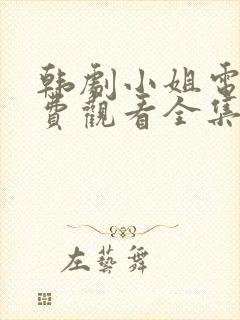 韩劇小姐電
費觀看全集
左藝舞